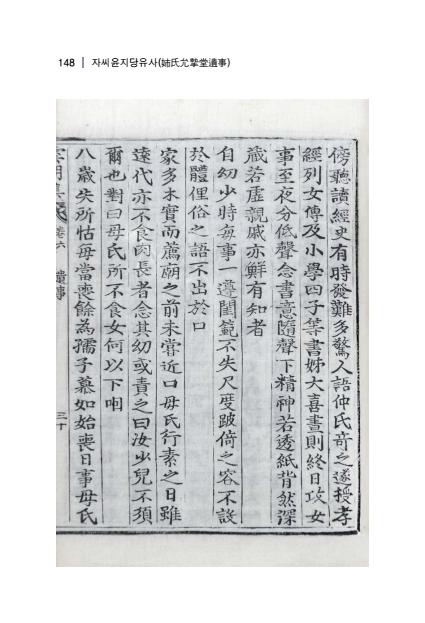 148 | 자씨윤지당유사(姉氏允摯堂遺事)
傍聽讀經史有時發難多驚人語仲氏奇之遂授孝
經列女傳及小學四子等書姊大喜晝則終日攻女
事至夜分低聲念書意隨聲下精神若透紙背然深
藏若虛親戚亦鮮有知者
自幼少時每事一遵閨範不失尺度跛倚之容不設
於體俚俗之語不出於口
家多木實而薦廟之前未嘗近口母氏行素之日雖
達代亦不食肉長者念其幼或責之曰汝少兒不須
爾也對曰母氏所不食女何以下咽
八歲失所怙每當喪餘為孺子慕如始喪日事母氏
卷六 遺事 三十